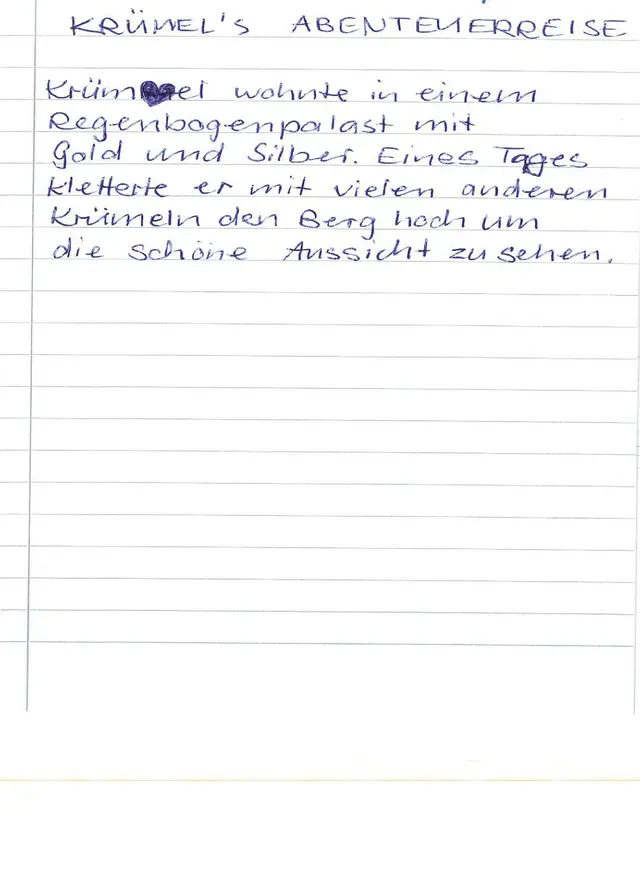 KRÜMEL'S ABENTEUERREISE
Krümel wohnte in einem
Regenbogenpalast mit
Gold und Silber. Eines Tages
kletterte er mit vielen anderen
Krümeln den Berg hoch um
die schöne Aussicht zu sehen.